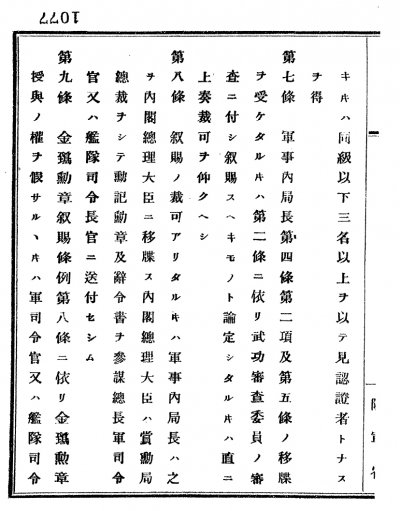 キハ同級以下三名以上ヲ以テ見認證者トナス
ヲ得
第七條　軍事內局長第四條第二項及第五條ノ移牒
ヲ受ケタルキハ第二條ニ依リ武功審査委員ノ審
査ニ付シ叙賜スヘキモノト論定シタルキハ直ニ
上奏裁可ヲ仰クヘシ
第八條　叙賜ノ裁可アリタルキハ軍事內局長ハ之
ヲ內閣總理大臣ニ移牒ス內閣總理大臣ハ賞勳局
總裁ヲシテ勳記勳章及辭令書ヲ參謀總長軍司令
官又ハ艦隊司令長官ニ送付セシム
第九條　金鵄勳章叙賜條例第八條ニ依リ金鵄勳章
授與ノ權ヲ假サルヽキハ軍司令官又ハ艦隊司令
1077